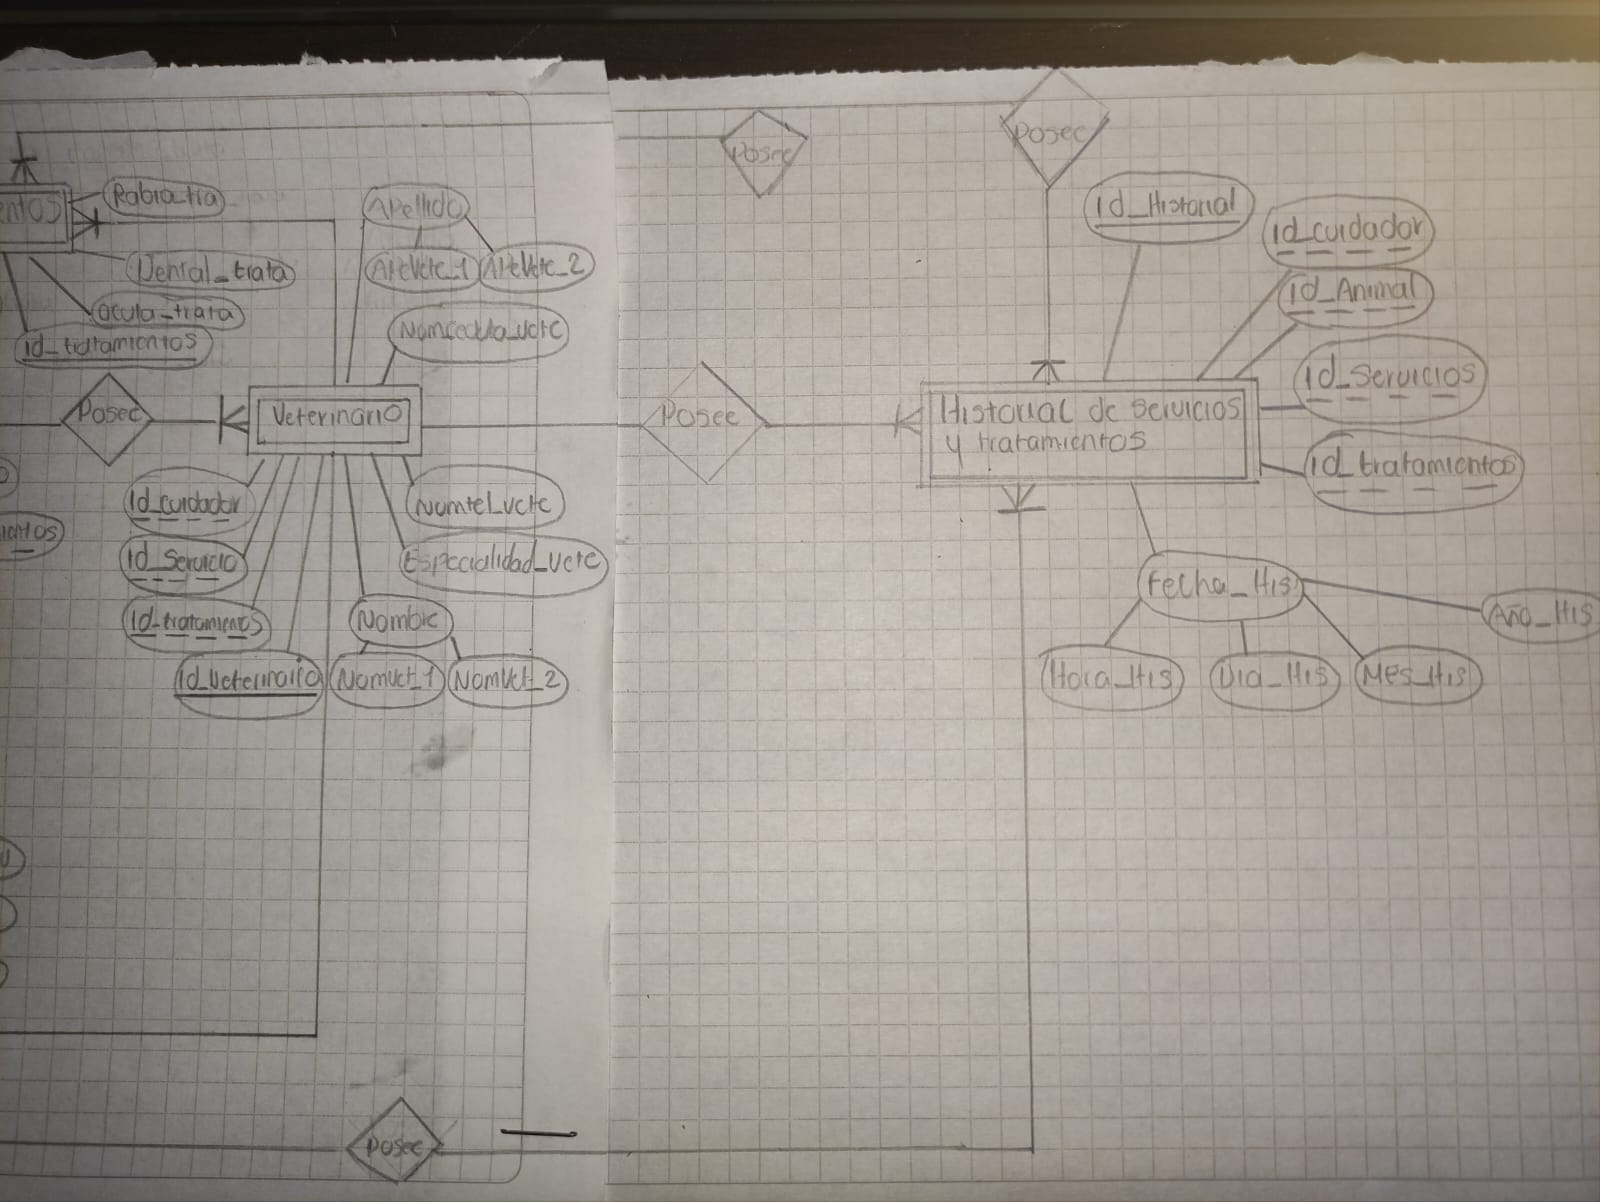 Posee
Posee
entos
Rabia_tra
Dental_trata
Ocula_trata
id_tratamientos
Apellido
ApeVete_1
ApeVete_2
Numcedula_vete
Posee
Veterinario
Id_cuidador
id_Servicio
Id_tratamientos
Id_veterinario
Numtel_vete
Especialidad_vete
Nombre
NomVet_1
NomVet_2
Posee
id_Historial
id_cuidador
id_Animal
id_Servicios
id_tratamientos
Historial de servicios
y tratamientos
Fecha_His
Hora_His
Dia_His
Mes_His
Año_His
Posee